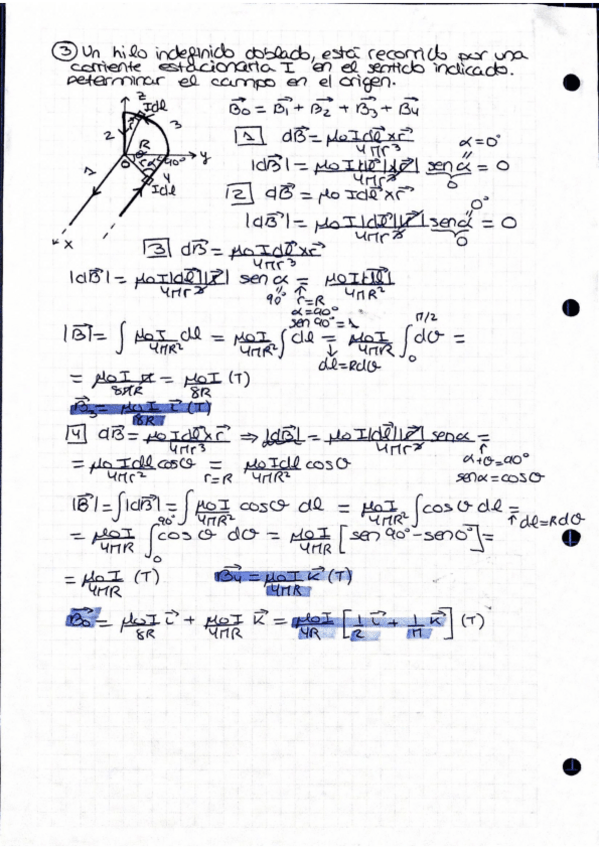 ③ Un hilo indefinido doblado, está recorrido por una
corriente estacionaria I en el sentido indicado.
Determinar el campo en el origen.
z Idl 2 R 3 r 0 α 90° y 4 Idl 1 x
B⃗₀ = B⃗₁ + B⃗₂ + B⃗₃ + B⃗₄
1 dB⃗ = μ₀Idl⃗×r⃗/4πr³ α=0°
|dB⃗| = μ₀I|dl⃗||r⃗|/4πr³ sen α = 0
2 dB⃗ = μ₀Idl⃗×r⃗/4πr³ 0°
|dB⃗| = μ₀I|dl⃗||r⃗|/4πr³ sen α = 0
3 dB⃗ = μ₀Idl⃗×r⃗/4πr³
|dB⃗| = μ₀I|dl⃗||r⃗|/4πr³ sen α = μ₀I|dl⃗|/4πR²
90° r=R
α=90°
sen 90°=1
|B⃗| = ∫ μ₀I/4πR² dl = μ₀I/4πR² ∫ dl = μ₀I/4πR ∫₀^π/2 dθ =
dl=Rdθ
= μ₀I π/8πR = μ₀I/8R (T)
B⃗₃ = μ₀I/8R i⃗ (T)
4 dB⃗ = μ₀Idl⃗×r⃗/4πr³ ⇒ |dB⃗| = μ₀I|dl⃗||r⃗|/4πr³ sen α =
α+θ=90°
sen α=cos θ
= μ₀Idl cos θ/4πR² = μ₀Idl/4πR² cos θ
r=R
|B⃗| = ∫|dB⃗| = ∫ μ₀I/4πR² cos θ dl = μ₀I/4πR² ∫ cos θ dl =
dl=Rdθ
= μ₀I/4πR ∫₀^90° cos θ dθ = μ₀I/4πR [sen 90° - sen 0°] =
= μ₀I/4πR (T) B⃗₄ = μ₀I/4πR k⃗ (T)
B⃗₀ = μ₀I/8R i⃗ + μ₀I/4πR k⃗ = μ₀I/4R [1/2 i⃗ + 1/π k⃗] (T)